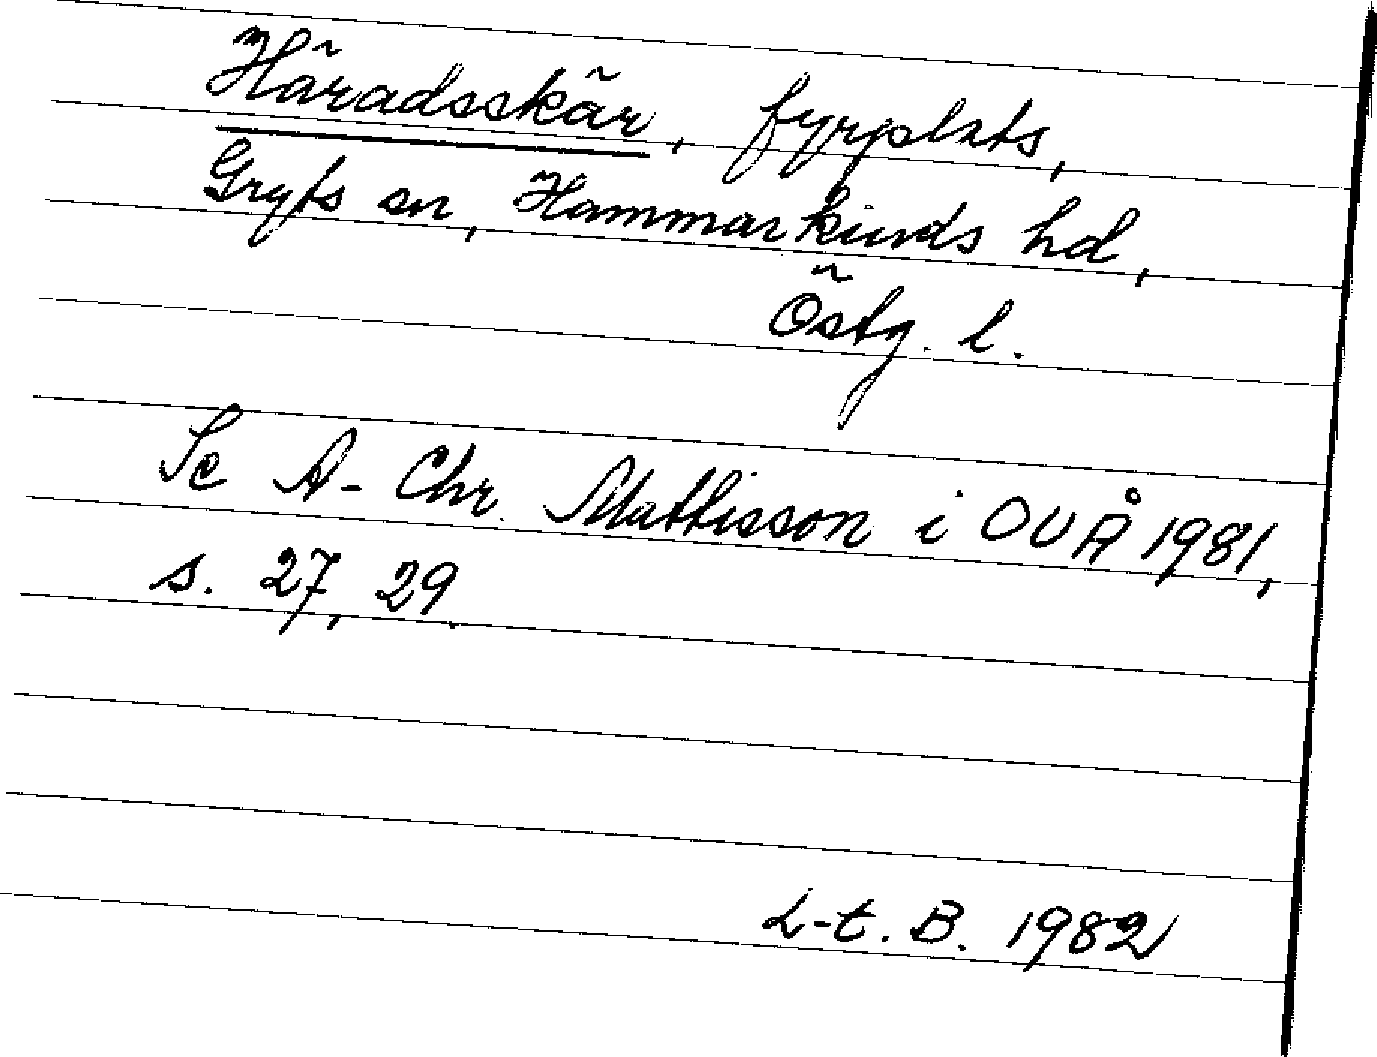 Häradsskär, fyrplats,
Gryts sn, Hammarkinds hd,
Östg. l.
Se A-Chr. Mattisson i OUÅ 1981,
s. 27, 29.
L-t. B. 1982